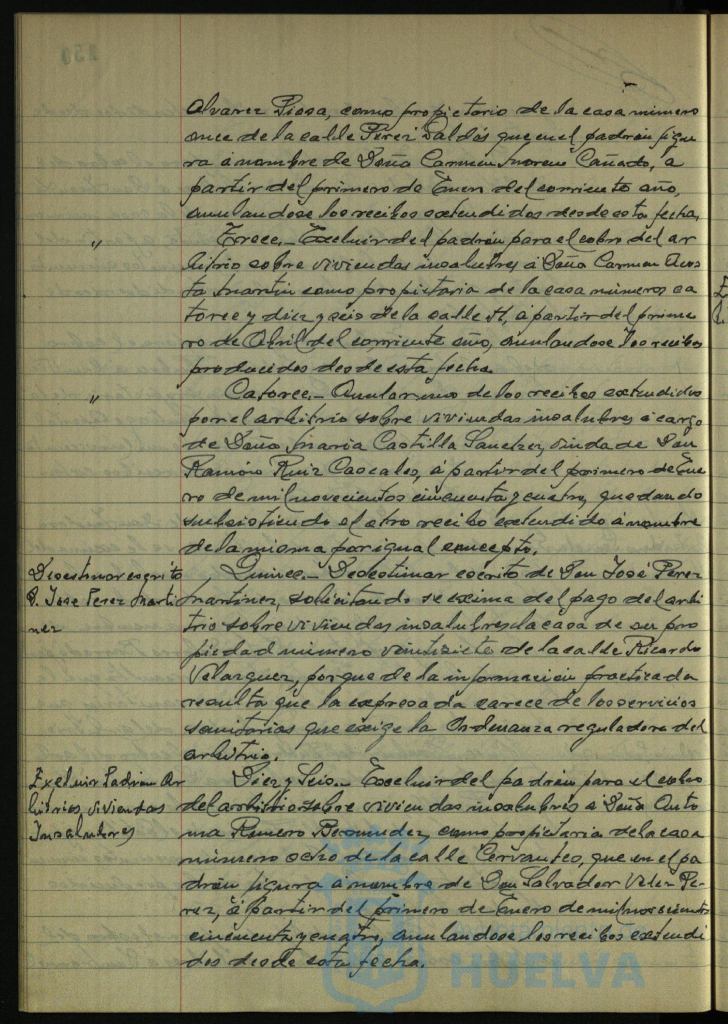 Alvarez Piosa, como propietario de la casa número
once de la calle Pérez Galdós que en el padrón figu
ra á nombre de Doña Carmen Moreno Cañado, a
partir del primero de Enero del corriente año,
anulandose los recibos extendidos desde esta fecha.
" Trece.- Excluir del padrón para el cobro del ar
bitrio sobre viviendas insalubres á Doña Carmen Acos
ta Martin como propietaria de la casa números ca
torce y diez y seis de la calle H, á partir del prime
ro de Abril del corriente año, anulandose los recibos
producidos desde esta fecha.
" Catorce.- Anular uno de los recibos extendidos
por el arbitrio sobre viviendas insalubres á cargo
de Doña Maria Castilla Sanchez, viuda de Don
Ramón Ruiz Cascales, á partir del primero de Ene
ro de mil novecientos cincuenta y cuatro, quedando
subsistiendo el otro recibo extendido á nombre
de la misma por igual concepto.
Desestimar escrito
D. José Perez Marti
nez
Quince.- Desestimar escrito de Don José Perez
Martinez, solicitando se exima del pago del arbi
trio sobre viviendas insalubres la casa de su pro
piedad número veintisiete de la calle Ricardo
Velazquez, porque de la información practicada
resulta que la expresada carece de los servicios
sanitarios que exige la Ordenanza reguladora del
arbitrio.
Excluir Padrón Ar
bitrios viviendas
Insalubres
Diez y Seis.- Excluir del padrón para el cobro
del arbitrio sobre viviendas insalubres á Doña Anto
nia Romero Bermudez, como propietaria de la casa
número ocho de la calle Cervantes, que en el pa
drón figura á nombre de Don Salvador Velez Pe
rez, á partir del primero de Enero de mil novecientos
cincuenta y cuatro, anulandose los recibos extendi
dos desde esta fecha.
HUELVA